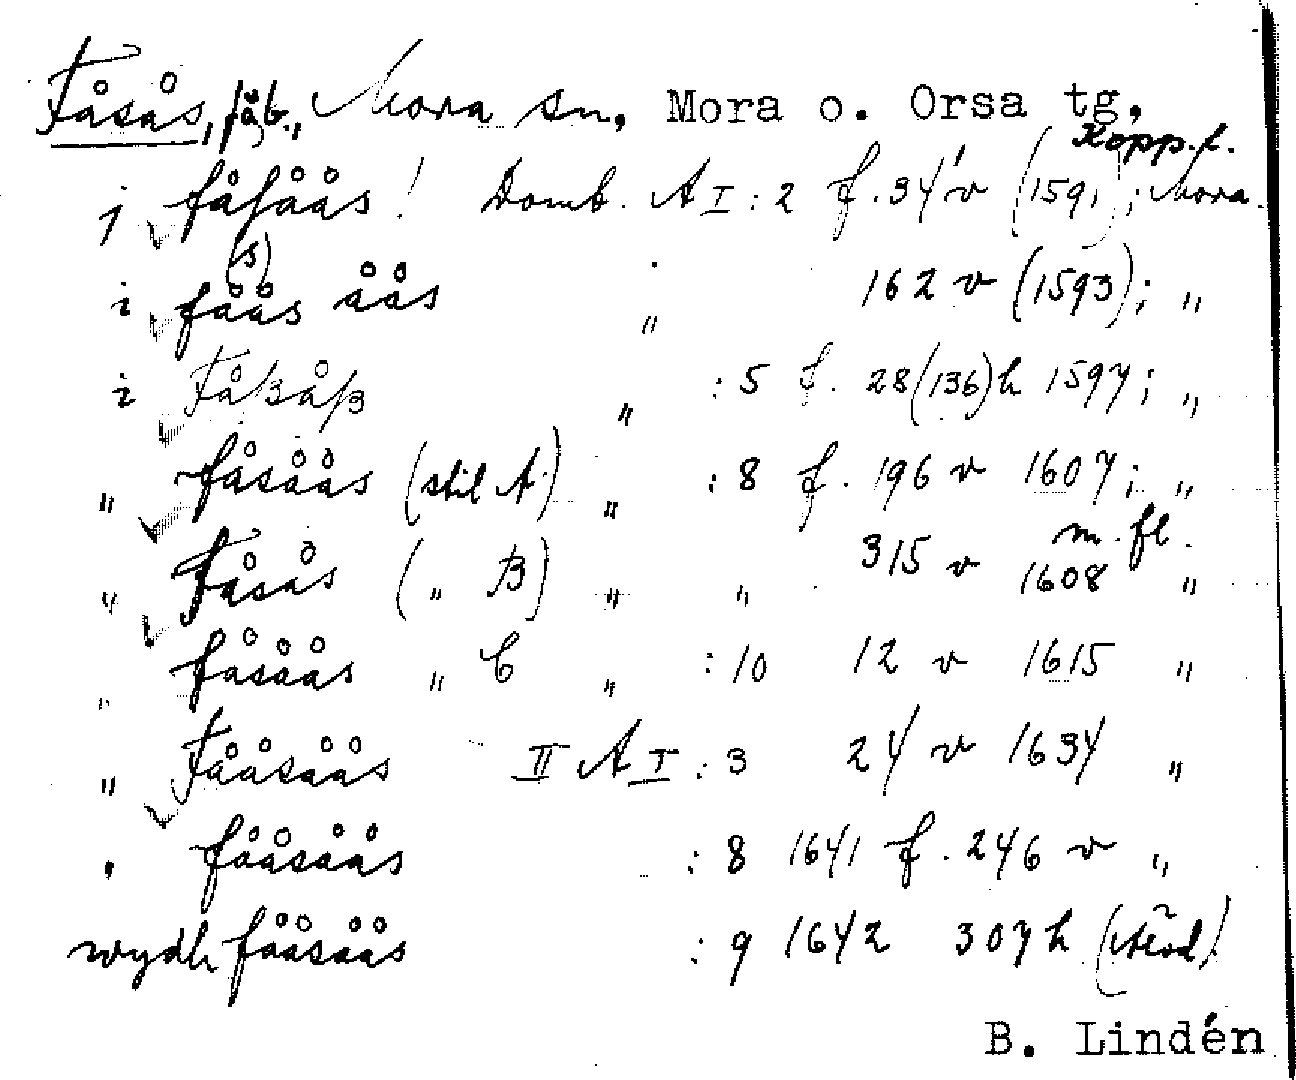 Fåsås, fäb., Mora sn, Mora o. Orsa tg,
Kopp. l.
j fåsåås! Domb. A I : 2 f. 34 v (1591); Mora
(s)
i fåås åås " 162 v (1593); "
i Fåßåß " : 5 f. 28 (136) h 1597; "
" fåsåås (stil A) " : 8 f. 196 v 1607; "
m. fl.
" Fåsås ( " B) " " 315 v 1608 "
" fåsåås " C " : 10 12 v 1615 "
" Fååsåås II A I : 3 24 v 1634 "
" fååsåås : 8 1641 f. 246 v "
wydh fååsåås : 9 1642 307 h
B. Lindén